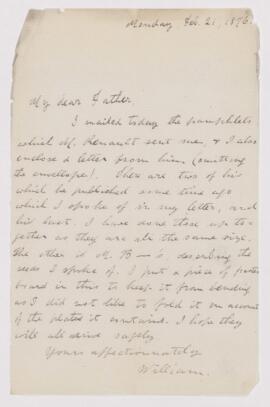 Monday, Feb. 21, 1876.
My dear Father,
I mailed today the pamphlets
which M. Renault sent me, & I also
enclose a letter from him (omitting
the envelope). There are two of his
which he published some time ago
which I spoke of in my letter, and
his last. I have done these up to-
gether as they are all the same size.
The other is M. B—'s, describing the
seeds I spoke of. I put a piece of paste
board in this to keep it from bending
as I did not like to fold it on account
of the plates it contains. I hope they
will all arrive safely.
Yours affectionately
William.